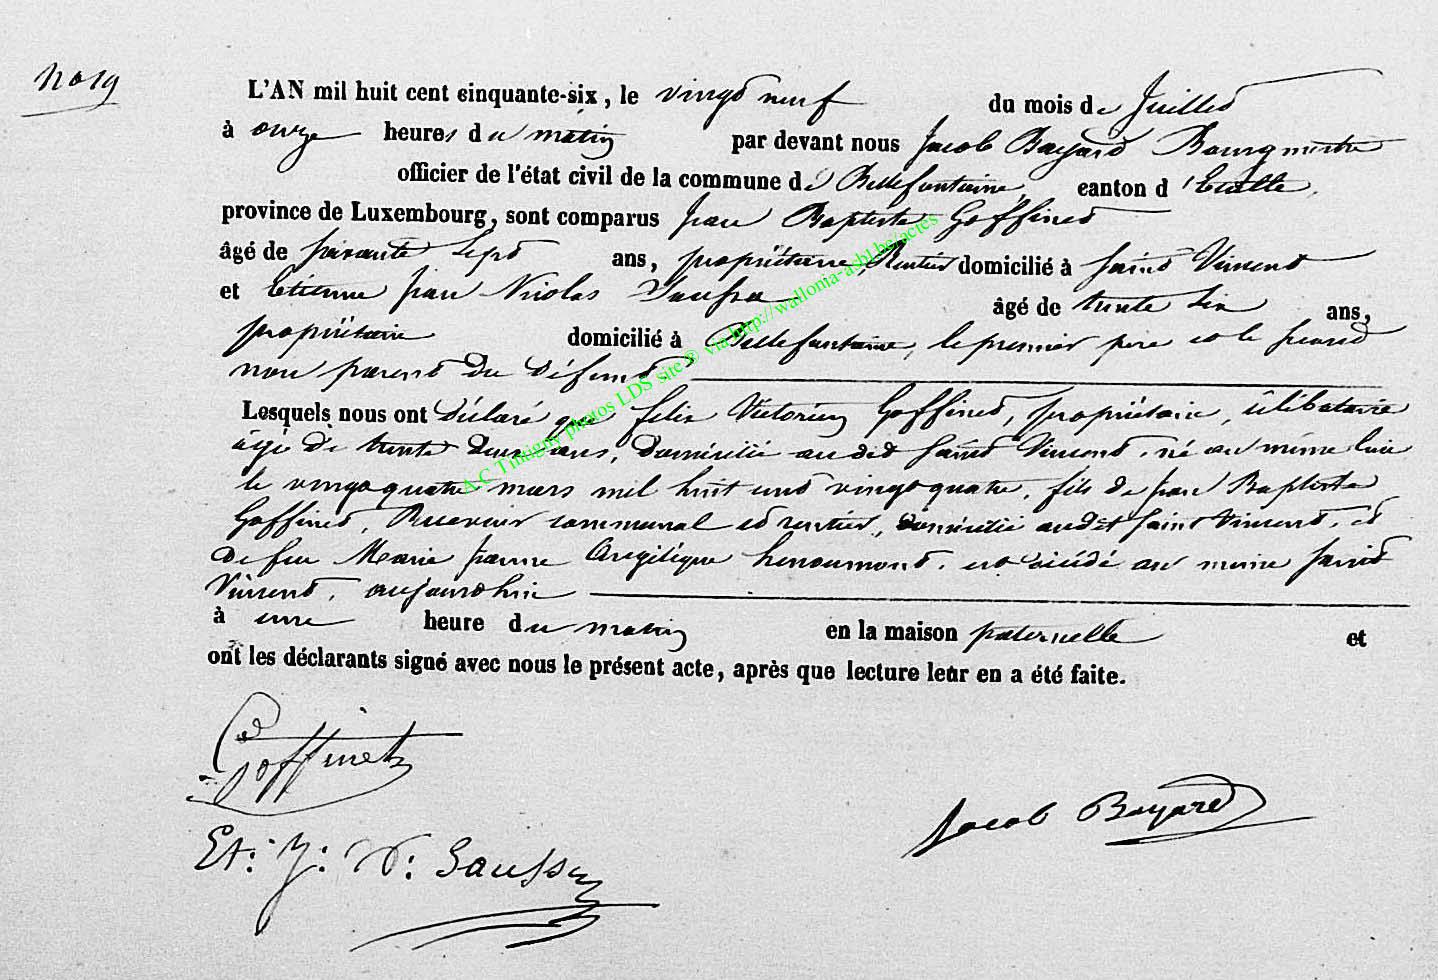 No 19
L'AN mil huit cent cinquante-six, le vingt neuf du mois de Juillet
à onze heures du matin par devant nous Jacob Bayard Bourgmestre
officier de l'état civil de la commune de Bellefontaine, canton d'Etalle,
province de Luxembourg, sont comparus Jean Baptiste Goffinet
âgé de soixante sept ans, propriétaire, Rentier domicilié à Saint Vincent
et Etienne Jean Nicolas âgé de trente six ans,
propriétaire domicilié à Bellefontaine, le premier père et le second
non parent du défunt
Lesquels nous ont déclaré que felix Victorien Goffinet, propriétaire, célibataire
âgé de trente deux ans, domicilié audit Saint Vincent, né au même lieu
le vingt quatre mars mil huit cent vingt quatre, fils de Jean Baptiste
Goffinet, Receveur communal et rentier, domicilié audit Saint Vincent, et
de feu Marie Jeanne Angélique henoumont, est décédé au même Saint
Vincent, aujourd'hui
à une heure du matin en la maison paternelle et
ont les déclarants signé avec nous le présent acte, après que lecture leur en a été faite.
Goffinet
Jacob Bayard
Et: J: N:
A.C Tintigny photos LDS site ® via http://wallonia-asbl.be/actes